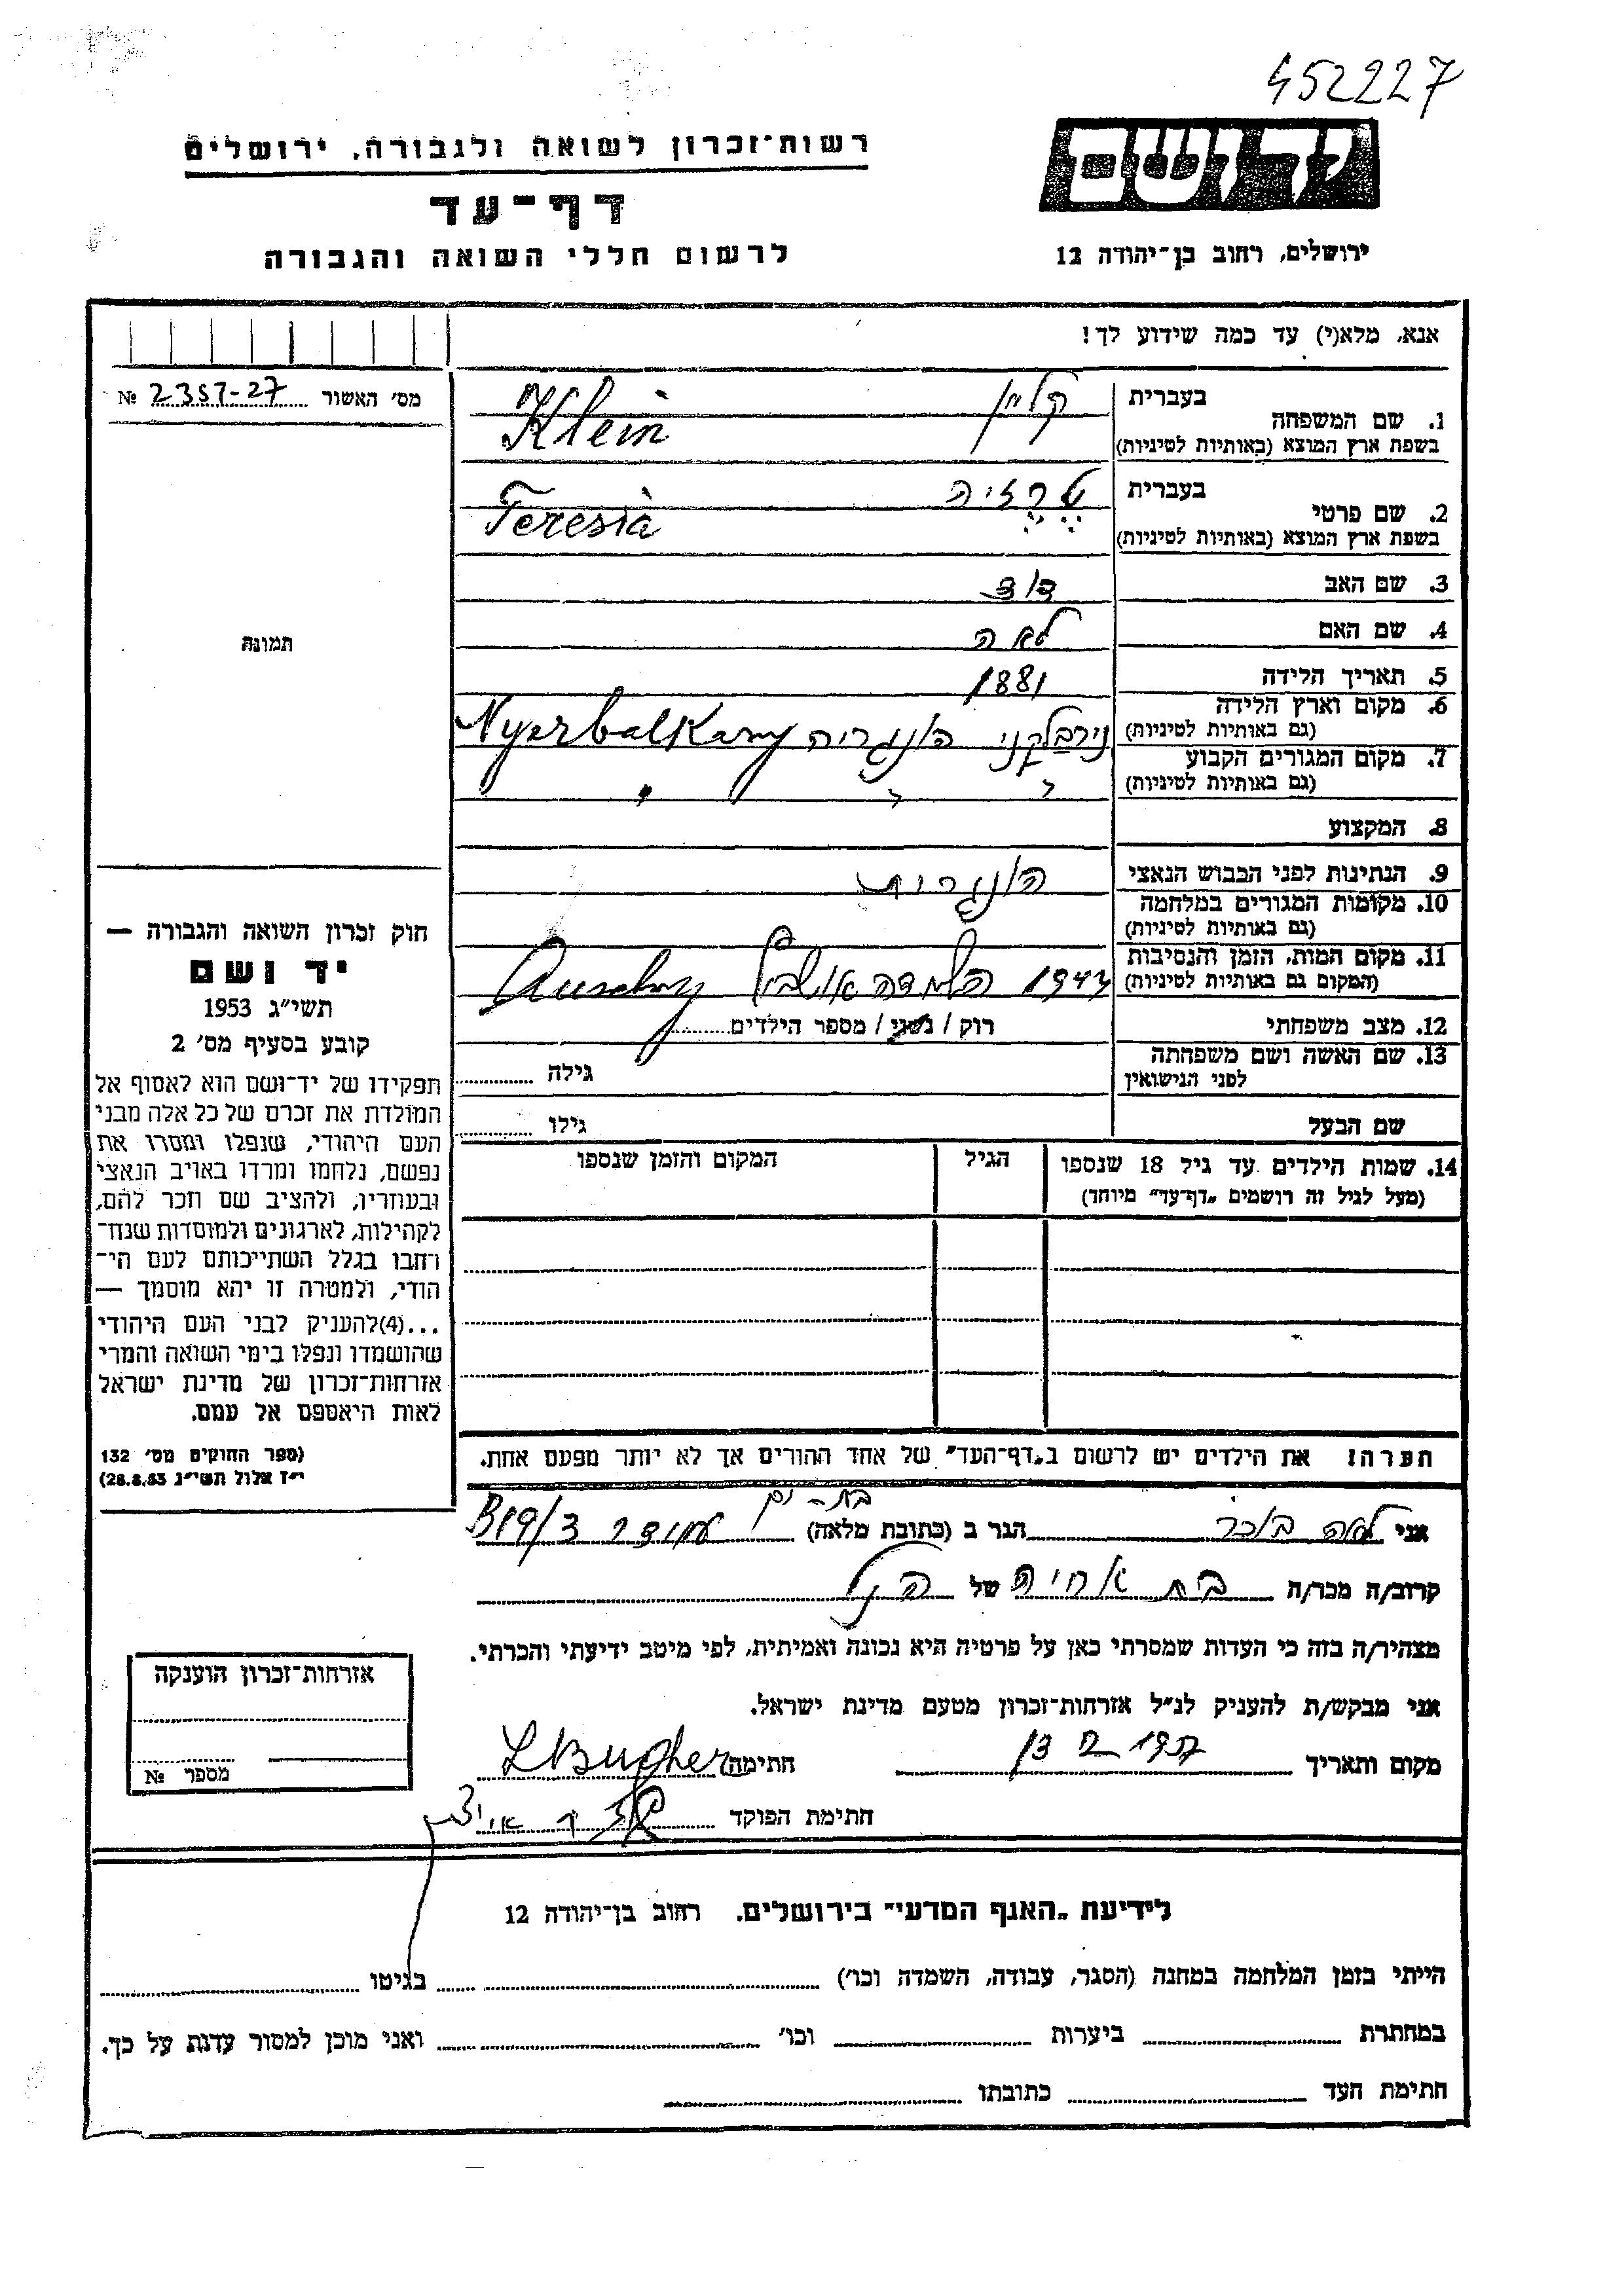 452227
יד ושם
רשות־זכרון לשואה ולגבורה, ירושלים
דף־עד
לרשום חללי השואה והגבורה
ירושלים, רחוב בן־יהודה 12
אנא, מלא(י) עד כמה שידוע לך!
מס׳ האשור 2357-27 №
תמונה
1. שם המשפחה
בעברית קליין
בשפת ארץ המוצא (באותיות לטיניות) Klein
2. שם פרטי
בעברית טרזיה
בשפת ארץ המוצא (באותיות לטיניות) Teresia
3. שם האב דוד
4. שם האם לאה
5. תאריך הלידה 1881
6. מקום וארץ הלידה
(גם באותיות לטיניות) נירבלקני הונגריה Nyerbalkany
7. מקום המגורים הקבוע
(גם באותיות לטיניות) " " "
8. המקצוע
9. הנתינות לפני הכבוש הנאצי הונגרית
10. מקומות המגורים במלחמה
(גם באותיות לטיניות)
11. מקום המות, הזמן והנסיבות
(המקום גם באותיות לטיניות) 1944 השמדה
12. מצב משפחתי רוק / נשוי / מספר הילדים
13. שם האשה ושם משפחתה
לפני הנישואין גילה
שם הבעל גילו
14. שמות הילדים עד גיל 18 שנספו הגיל המקום והזמן שנספו
(מעל לגיל זה רושמים „דף־עד״ מיוחד)
חוק זכרון השואה והגבורה —
יד ושם
תשי״ג 1953
קובע בסעיף מס׳ 2
תפקידו של יד־ושם הוא לאסוף אל
המולדת את זכרם של כל אלה מבני
העם היהודי, שנפלו ומסרו את
נפשם, נלחמו ומרדו באויב הנאצי
ובעוזריו, ולהציב שם וזכר להם,
לקהילות, לארגונים ולמוסדות שנח־
רחבו בגלל השתייכותם לעם הי־
הודי, ולמטרה זו יהא מוסמך —
...(4)להעניק לבני העם היהודי
שהושמדו ונפלו בימי השואה והמרי
אזרחות־זכרון של מדינת ישראל
לאות היאספם אל עמם.
(ספר החוקים מס׳ 132
י״ז אלול תשי״ג 28.8.53)
הערה! את הילדים יש לרשום ב„דף־העד״ של אחד ההורים אך לא יותר מפעם אחת.
אני לאה בוכר הגר ב (כתובת מלאה) בת-ים עמידר B19/3
קרוב/ה מכר/ה בת אחיה של הנ״ל
מצהיר/ה בזה כי העדות שמסרתי כאן על פרטיה היא נכונה ואמיתית, לפי מיטב ידיעתי והכרתי.
אני מבקש/ת להעניק לנ״ל אזרחות־זכרון מטעם מדינת ישראל.
מקום ותאריך 13 1957 חתימה LBugher
חתימת הפוקד
אזרחות־זכרון הוענקה
מספר №
לידיעת „האגף המדעי״ בירושלים. רחוב בן־יהודה 12
הייתי בזמן המלחמה במחנה (הסגר, עבודה, השמדה וכו׳) בגיטו
במחתרת ביערות וכו׳ ואני מוכן למסור עדות על כך.
חתימת העד כתובתו